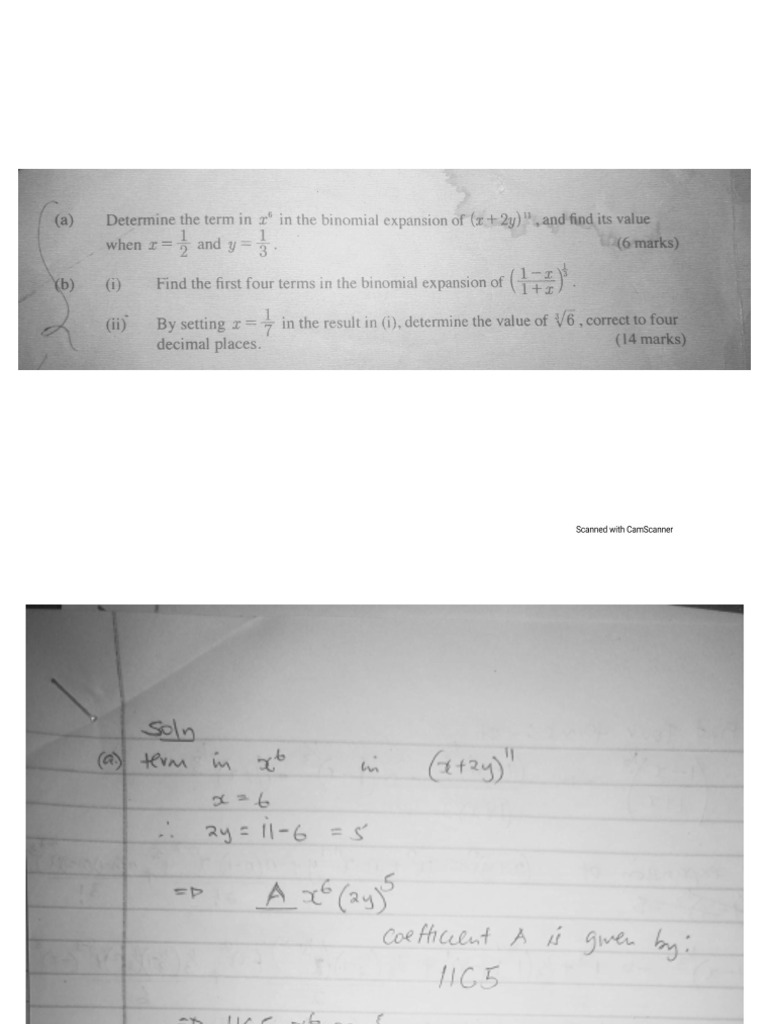 (a) Determine the term in x⁶ in the binomial expansion of (x + 2y)¹¹, and find its value
when x = 1/2 and y = 1/3. (6 marks)
(b) (i) Find the first four terms in the binomial expansion of ((1 − x)/(1 + x))^(1/3).
(ii) By setting x = 1/7 in the result in (i), determine the value of ∛6, correct to four
decimal places. (14 marks)
Scanned with CamScanner
Soln
(a) term in x⁶ in (x+2y)¹¹
x = 6
∴ 2y = 11-6 = 5
⇒ A x⁶(2y)⁵
coefficient A is given by:
11C5